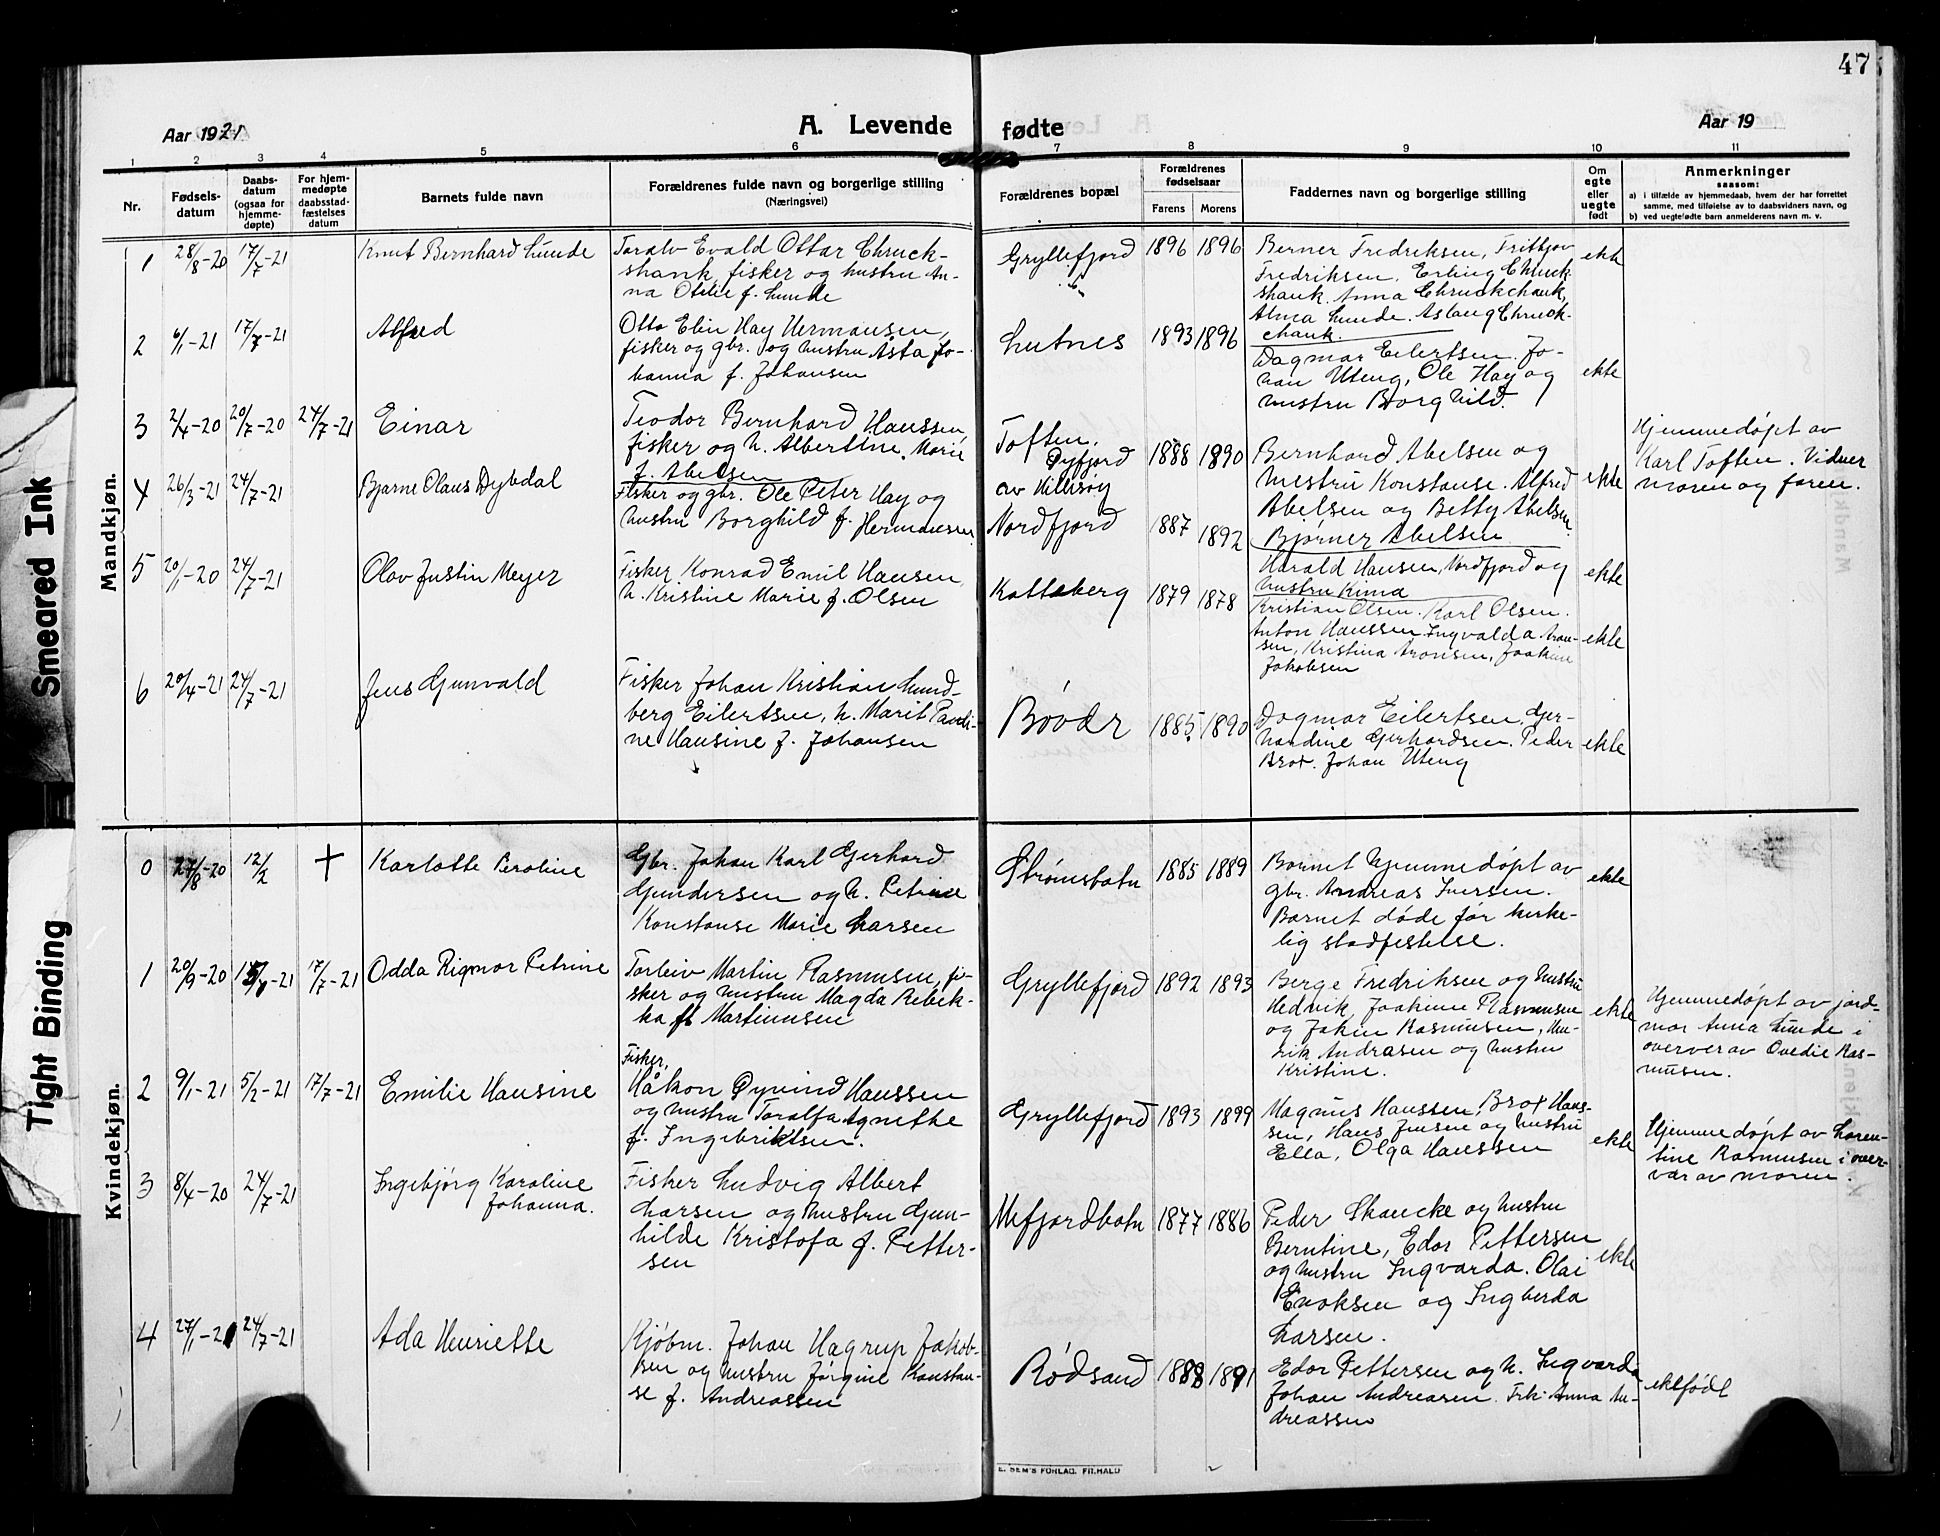 47
Aar 1921
A. Levende fødte
Aar 19
1 2 3 4 5 6 7 8 9 10 11
Nr.
Fødsels-
datum
Daabs-
datum
(ogsaa for
hjemme-
døpte)
For hjem-
medøpte
daabsstad-
fæstelses
datum
Barnets fulde navn
Forældrenes fulde navn og borgerlige stilling
(Næringsvei)
Forældrenes bopæl
Forældrenes
fødselsaar
Farens Morens
Faddernes navn og borgerlige stilling
Om
egte
eller
uegte
født
Anmerkninger
saasom:
a) i tilfælde av hjemmedaab, hvem der har forrettet
samme, med tilføielse av to daabsvidners navn, og
b) ved uegtefødte barn anmelderens navn m. v.
Smeared Ink
Tight Binding
Mandkjøn.
1 28/8-20 17/7-21 Knut Bernhard Lunde
Toralv Evald Ottar Chruck-
shank, fisker og hustru An-
na Otelie f. Lunde
Gryllefjord 1896 1896
Berner Fredriksen, Fritjov
Fredriksen, Erling Chruck
shank. Anna Chruckchank,
Alma Lunde. Aslaug Chruck-
chank.
ekte
2 6/1-21 17/7-21 Alfred
Otto Elin Hay Hermansen,
fisker og gbr. og hustru Asta Jo-
hanna f. Johansen
Lutnes 1893 1896
Dagmar Eilertsen. Jo-
han Uteng, Ole Hay og
hustru Borghild.
ekte
3 2/4-20 20/7-20 24/7-21 Einar
Teodor Bernhard Hanssen,
fisker og h. Albertine Marie
f. Abelsen
Toften,
Øyfjord
1888 1890
Bernhard Abelsen og
hustru Konstanse. Alfred
Abelsen og Betty Abelsen.
Bjørner Abelsen
ekte
Hjemmedøpt av
Karl Toften. Vidner
moren og faren.
4 26/3-21 24/7-21 Bjarne Olaus Dybdal
Fisker og gbr. Ole Peter Hay og
hustru Borghild f. Hermansen
Nordfjord 1887 1892
Harald Hansen, Nordfjord og
hustru Kinna
ekte
5 20/1-20 24/7-21 Olav Justin Meyer
Fisker Konrad Emil Hansen,
h. Kristine Marie f. Olsen
Kaltsberg 1879 1878
Kristian Olsen. Karl Olsen.
Anton Hanssen Ingvalda Aron-
sen, Kristina Aronsen, Joakim
Jakobsen
ekte
6 20/4-21 24/7-21 Jens Gunvald
Fisker Johan Kristian Lund-
berg Eilertsen, h. Marit Pauli-
ne Hansine f. Johansen
Bøvær 1885 1890
Dagmar Eilertsen. Ger-
hardine Gerhardsen. Peder
Brox. Johan Uteng
ekte
Kvindekjøn.
0 27/8-20 12/2 † Karlotte Peroline
Gbr. Johan Karl Gerhard
Gundersen og h. Petrine
Konstanse Marie Larsen
Strømsbotn 1885 1889
Barnet hjemmedøpt av
gbr. Andreas Iversen.
Barnet døde før kirke-
lig stadfestelse.
ekte
1 20/9-20 17/7-21 Odda Rigmor Petrine
Torleiv Martin Rasmusen, fi-
sker og hustru Magda Rebek-
ka f. Martinusen
Gryllefjord 1892 1893
Berge Fredriksen og hustru
Hedvik, Joakime Rasmusen
og Jokum Rasmusen, Hen-
rik Andrasen og hustru
Kristine.
ekte
Hjemmedøpt av jord-
mor Anna Lunde i
overver av Ovedie Ras-
musen.
2 9/1-21 5/2-21 17/7-21 Emilie Hansine
Fisker,
Håkon Øyvind Hanssen
og hustru Toralfa Agnethe
f. Ingebriktsen.
Gryllefjord 1893 1899
Magnus Hanssen, Brox Hans-
sen, Hans Jensen og hustru
Ella, Olga Hanssen
ekte
Hjemmedøpt av Loren-
tine Rasmusen i over-
vær av moren.
3 8/4-20 24/7-21 Ingebjørg Karoline
Johanna.
Fisker Ludvig Albert
Larsen og hustru Gun-
hilde Kristofa f. Petter-
sen
Mefjordbotn 1877 1886
Peder Skancke og hustru
Berntine, Edor Pettersen
og hustru Ingvarda. Olai
Enoksen og Ingberda
Larsen.
ekte
4 27/1-21 24/7-21 Ada Henriette
Kjøbm. Johan Hagrup Jakob-
sen og hustru Jørgine Konstan-
se f. Andreassen
Rødsand 1888 1891
Edor Pettersen og h. Ingvarda
Johan Andreasen. Frk. Anna An-
dreassen
ektefødt
E. SEM'S FORLAG, FR.HALD